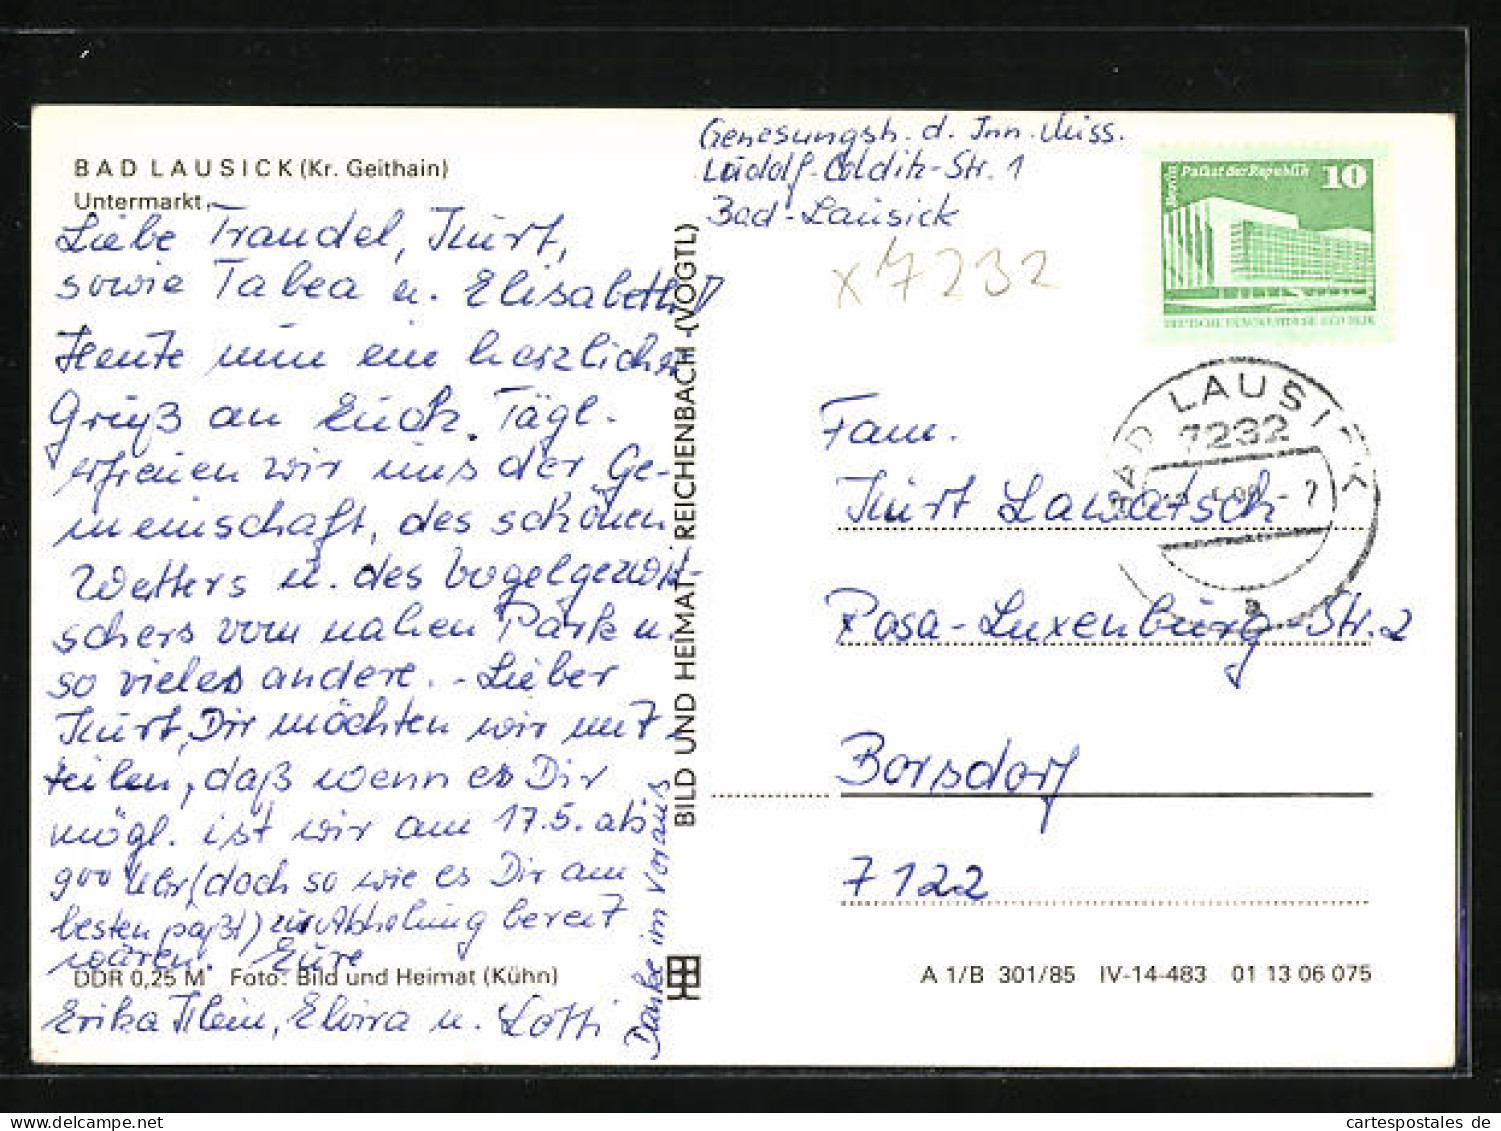 BAD LAUSICK (Kr. Geithain)
Untermarkt
Liebe Traudel, Kurt,
sowie Tabea u. Elisabeth!
Heute nun ein herzlicher
Gruß an Euch. Tägl.
erfreuen wir uns der Ge-
meinschaft, des schönen
Wetters u. des Vogelgezwit-
schers vom nahen Park u.
so vieles andere. - Lieber
Kurt, Dir möchten wir mit-
teilen, daß wenn es Dir
mögl. ist wir am 17.5. ab
9oo Uhr (doch so wie es Dir am
besten paßt) zur Abholung bereit
wären. Eure
DDR 0,25 M Foto: Bild und Heimat (Kühn)
Erika Klein, Elvira u. Lotti
Danke im voraus
BILD UND HEIMAT REICHENBACH (VOGTL)
Genesungsh. d. Inn. Miss.
Ludolf-Colditz-Str. 1
Bad-Lausick
x 7232
Berlin Palast der Republik 10
DEUTSCHE DEMOKRATISCHE REPUBLIK
BAD LAUSICK
7232
a
Fam.
Kurt Lawatsch
Rosa-Luxenburg-Str. 2
Borsdorf
7122
A 1/B 301/85 IV-14-483 01 13 06 075
cartespostales.de